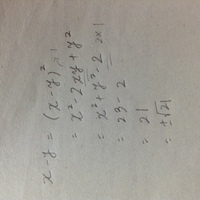 x-y = (x-y)²
= x²-2xy+y²
= x²+y²-2 2x1
= 23-2
= 21
= ±√21